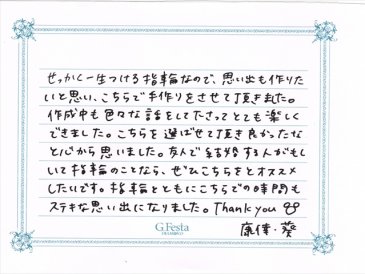 せっかく一生つける指輪なので、思い出も作りた
いと思い、こちらで手作りをさせて頂きました。
作成中も色々な話をして下さってとても楽しく
できました。こちらを選ばせて頂き良かったな
と心から思いました。友人で結婚する人がもし
いて指輪のことなら、ぜひこちらをとオススメ
したいです。指輪とともにこちらでの時間も
ステキな思い出になりました。Thank you
康倖・葵
G.Festa